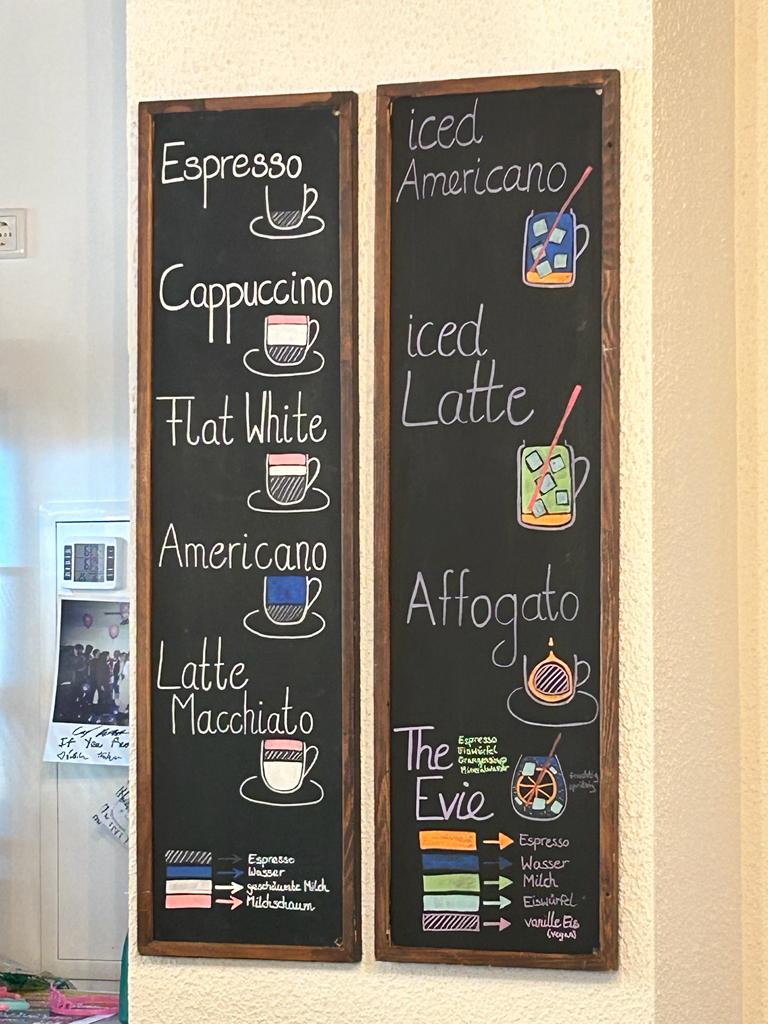 Espresso
Cappuccino
Flat White
Americano
Latte
Macchiato
Espresso
Wasser
geschäumte Milch
Milchschaum
iced
Americano
iced
Latte
Affogato
The
Evie
Espresso
Eiswürfel
Orangensirup
Mineralwasser
fruchtig
spritzig
Espresso
Wasser
Milch
Eiswürfel
vanille Eis
(vegan)
If You